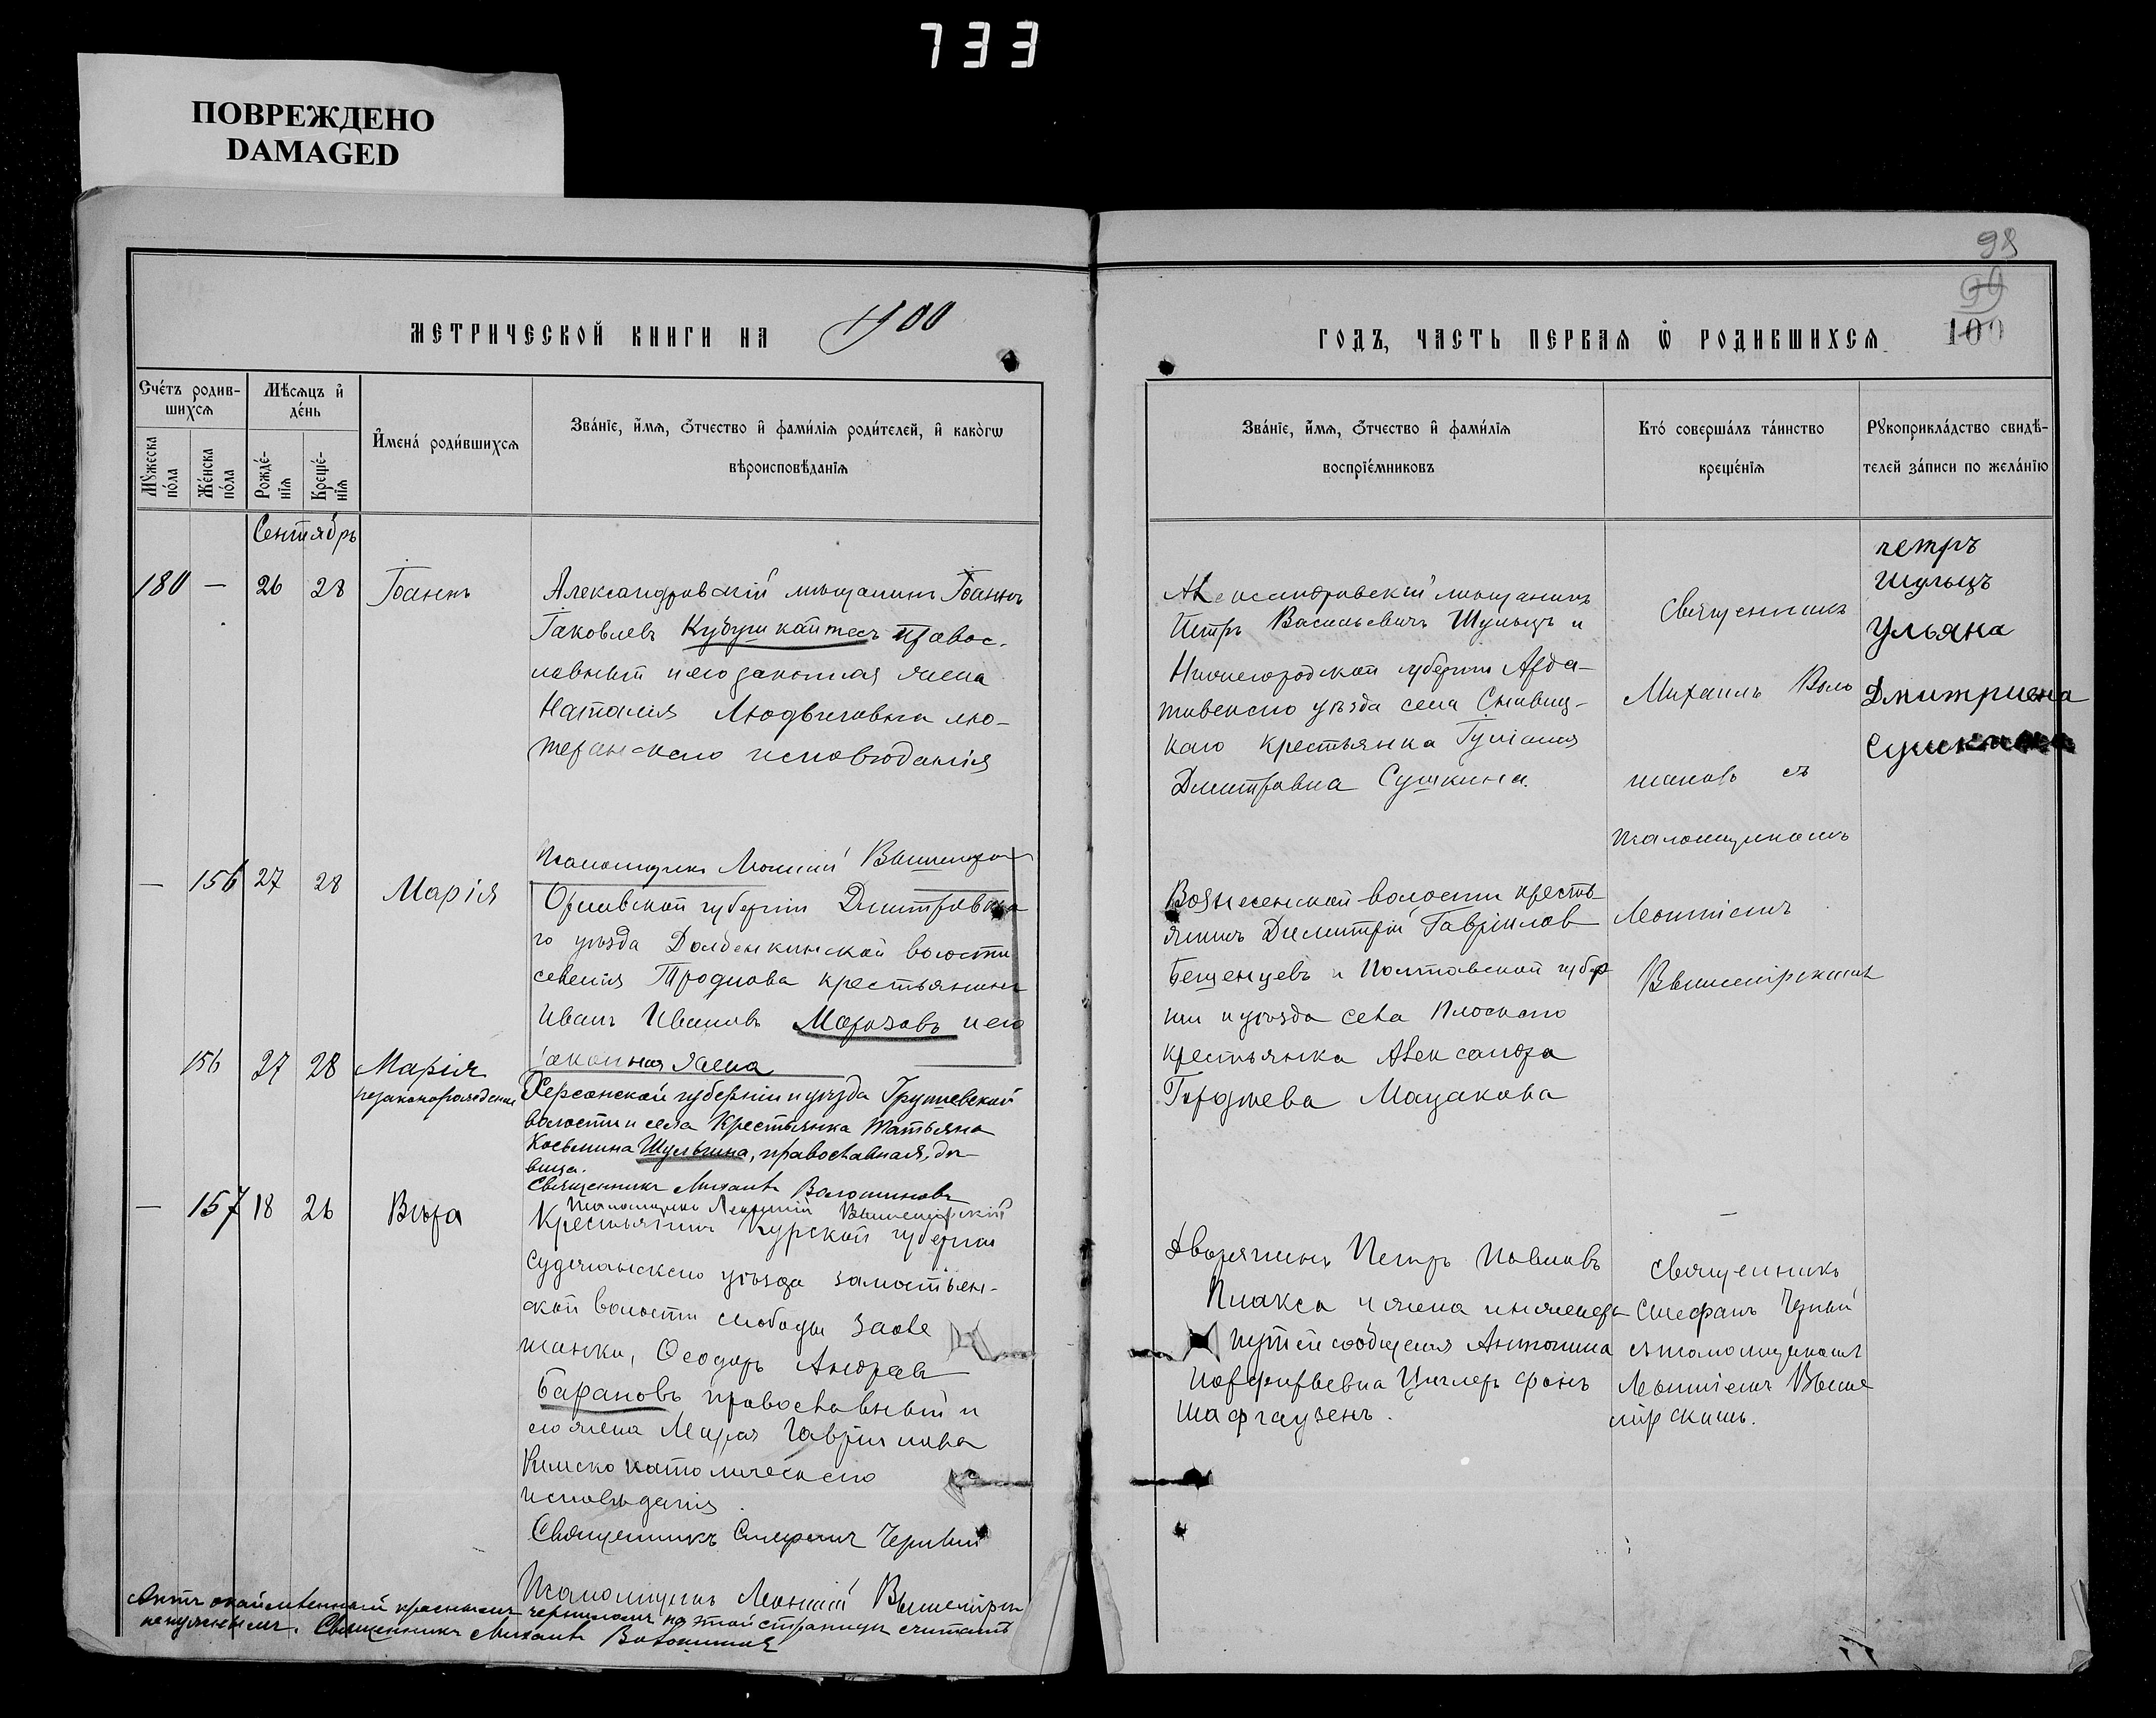 733
ПОВРЕЖДЕНО
DAMAGED
98
99
100
МЕТРИЧЕСКОЙ КНИГИ НА 1900
ГОДЪ, ЧАСТЬ ПЕРВАЯ Ѡ РОДИВШИХСЯ
Счетъ родив-
шихся
Мѣсяцъ и
день
Мужеска
пола
Женска
пола
Рожде-
нія
Креще-
нія
Имена родившихся
Званіе, имя, отчество и фамилія родителей, и какогѡ
вѣроисповѣданія
Званіе, имя, отчество и фамилія
воспріемниковъ
Кто совершалъ таинство
крещенія
Рукоприкладство свидѣ-
телей записи по желанію
Сентябрь
180 — 26 28 Іоаннъ
Александровскій мѣщанинъ Іоаннъ
Іаковлевъ православ
ный и его законная жена
Наталія Людвиговна лю-
теранскаго исповѣданія
Александровскій мѣщанинъ
Петръ Васильевичъ Шульцъ и
Нижегородской губерніи Арда-
товскаго уѣзда села
каго крестьянка
Димитровна Сушкина.
Священникъ
Михаилъ Воло
шиновъ съ
псаломщикомъ
Леонтіемъ
Вышемірскимъ
Петръ
Шульцъ
Ульяна
Дмитриена
Сушкина
Псаломщикъ Леонтій Вышемірскій
— 156 27 28 Марія
Орловской губерніи Дмитровска
го уѣзда Долбенкинской волости
селенія крестьянинъ
Иванъ Ивановъ Морозовъ и его
законная жена
Вознесенской волости кресть
янинъ Димитрій Гавріилов
Бешенцевъ и Полтавской губер
ніи и уѣзда села Плоскаго
крестьянка Александра
Мацакова
156 27 28 Марія
незаконорожденная
Херсонской губерніи и уѣзда Грушевской
волости и села Крестьянка Татьяна
Косьмина Шульгина, православная, дѣ-
вица.
Священникъ Михаилъ Волошиновъ
Псаломщикъ Леонтій Вышемірскій
— 157 18 26 Вѣра
Крестьянинъ Курской губерніи
Суджанскаго уѣзда Замостьян-
ской волости слободы Заоле
шанки, Ѳеодоръ Андреевъ
Барановъ православный и
его жена Марія Гавриловна
Римско католическаго
исповѣданія.
Священникъ Стефанъ Черный
Псаломщикъ Леонтій Вышемірскій
Дворянинъ Петръ Павловъ
Плакса и жена инженера
путей сообщенія Антонина
Порфирьевна Циглеръ фонъ
Шафгаузенъ.
Священникъ
Стефанъ Черный
съ псаломщикомъ
Леонтіемъ Выше
мірскимъ.
Актъ окаймленный красными чернилами на этой страницѣ считать
ненужнымъ. Священникъ Михаилъ Волошиновъ